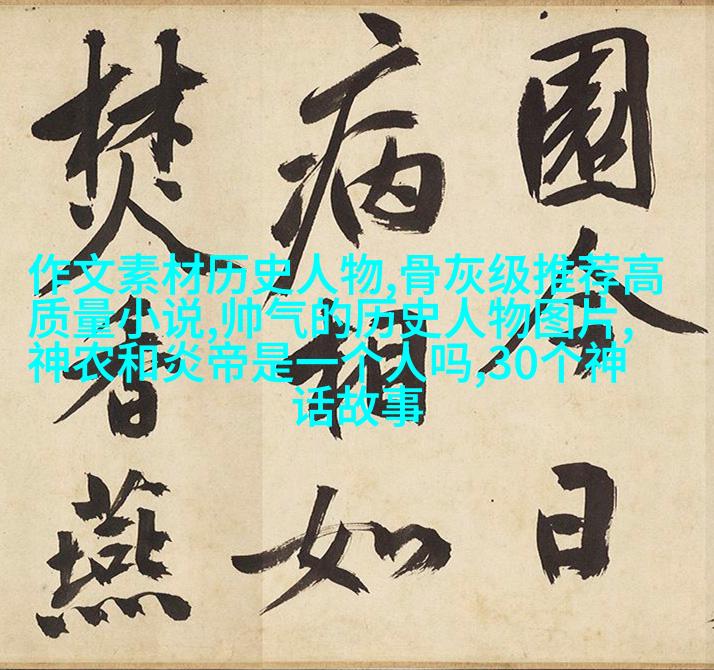 作文素材历史人物,骨灰级推荐高
质量小说,帅气的历史人物图片,
神农和炎帝是一个人吗,30个神
话故事
園今日
病相如
焚香燕